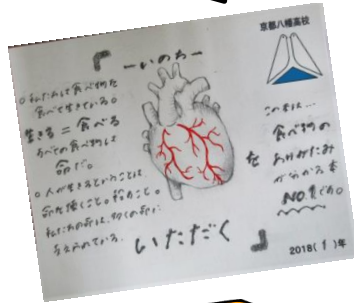 京都八幡高校
「
ーいのちー
○私たちって食べ物を
食べて生きている。
生きる=食べる
すべての食べ物は
命だ。
○人が生きるということは
命を頂くこと。
私たちの命は、多くの命に
支えられている。
を
いただく」
この本は…
食べ物の
ありがたみ
がわかる本
NO.1
2018(1)年